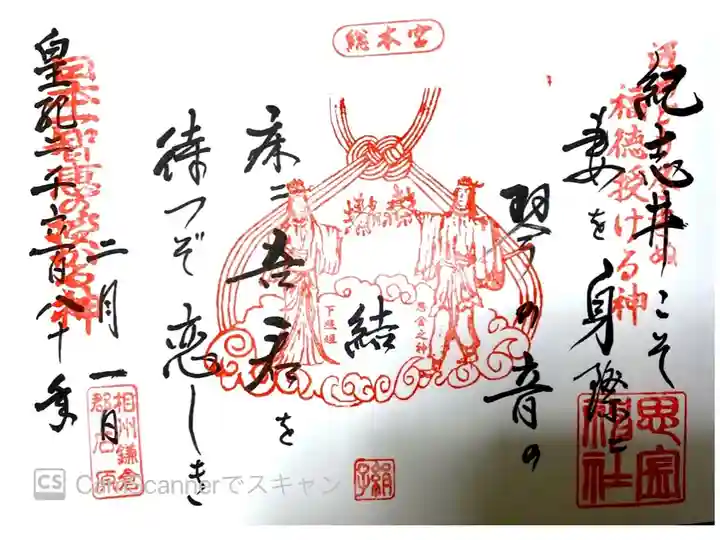 総本宮
紀志井こそ
妻を身際ニ
琴の音の
床ニ吾君を
待つぞ恋しき
皇紀二千六百八十年
二月一日
福徳授ける神
思金之神
下照姫
結
相州鎌倉
CS CamScannerでスキャン